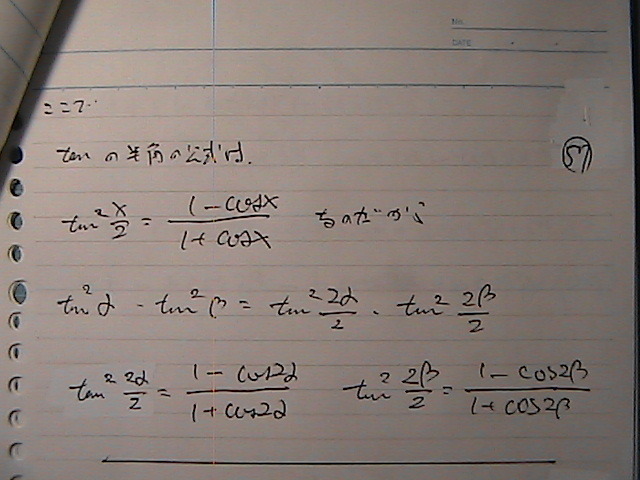 No.
DATE
ここで
57
tanの半角の公式は.
tan² x/2 = (1 - cosx)/(1 + cosx) なのだから
tan²α · tan²β = tan² 2α/2 · tan² 2β/2
tan² 2α/2 = (1 - cos2α)/(1 + cos2α) tan² 2β/2 = (1 - cos2β)/(1 + cos2β)